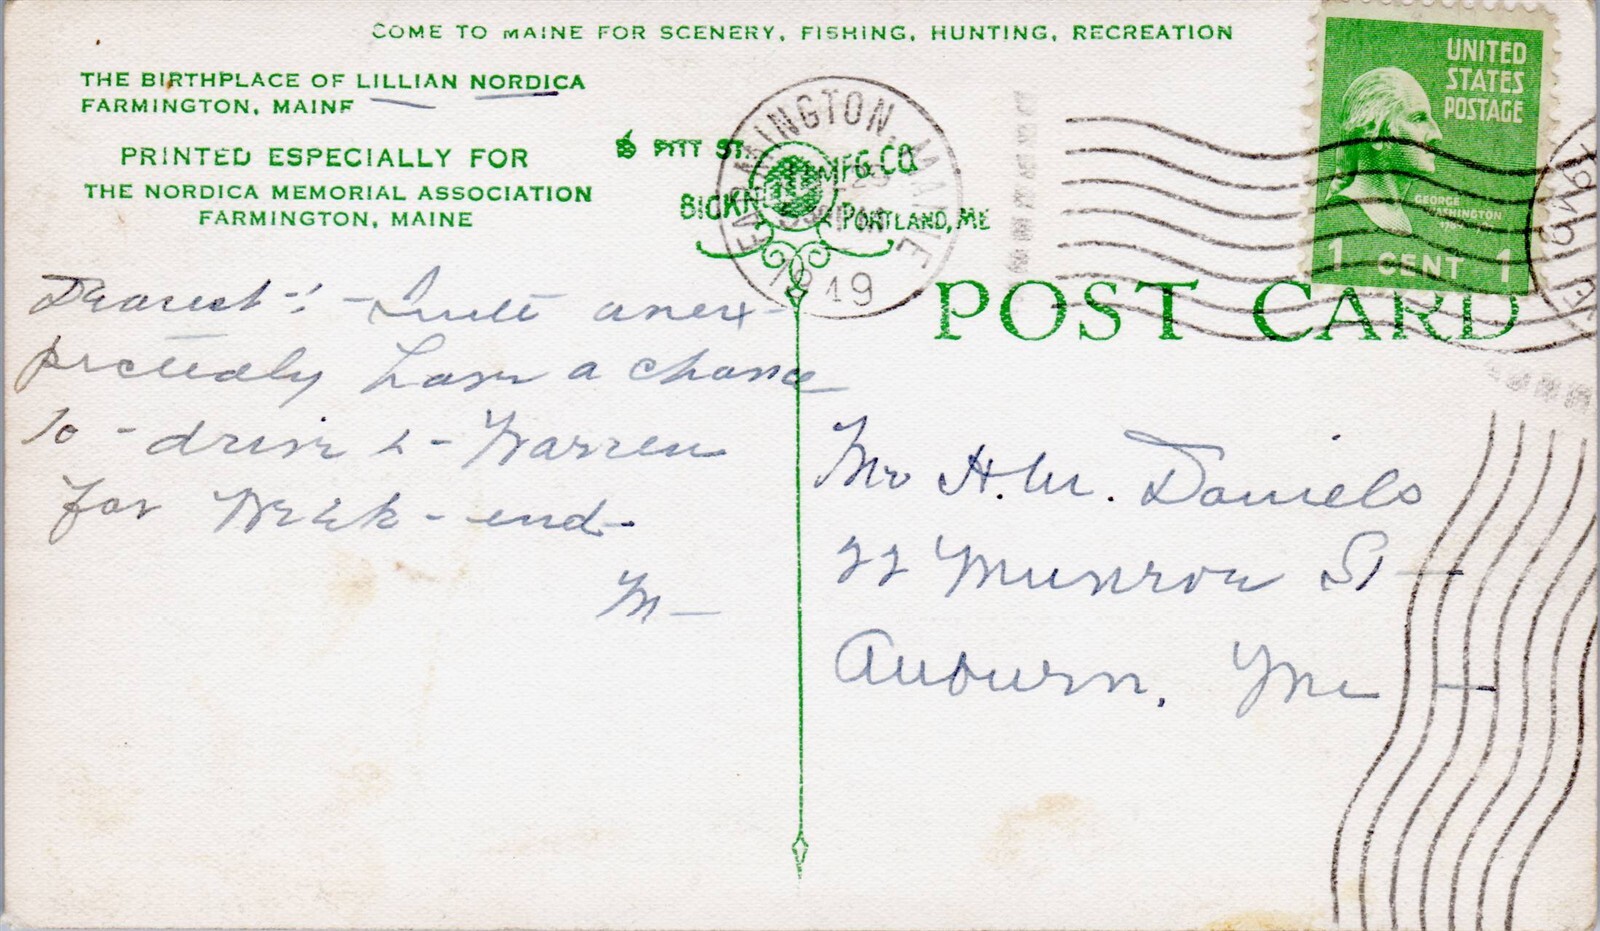 COME TO MAINE FOR SCENERY, FISHING, HUNTING, RECREATION
THE BIRTHPLACE OF LILLIAN NORDICA
FARMINGTON, MAINE
PRINTED ESPECIALLY FOR
THE NORDICA MEMORIAL ASSOCIATION
FARMINGTON, MAINE
PITT ST.
MFG. CO.
PORTLAND, ME
FARMINGTON, MAINE
1949
UNITED
STATES
POSTAGE
GEORGE
WASHINGTON
1 CENT 1
POST CARD
Dearest - : - Quite anex-
pectedly have a chance
to - drive to - Warren
for Week - end -
M —
Mr H. M. Daniels
22 Munroe St —
Auburn, Me —